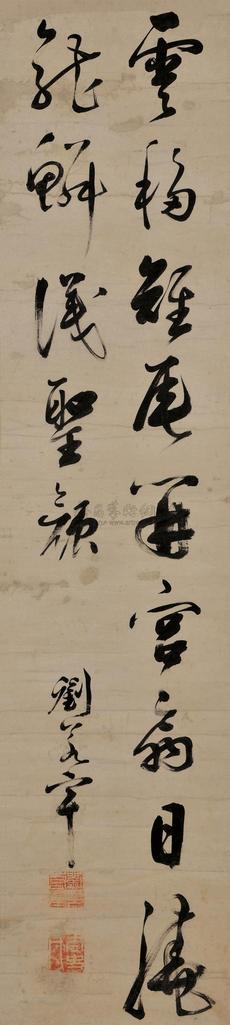 雲移雉尾開宮扇日繞
龍鱗識聖顏
劉若宰